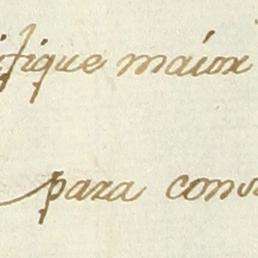 ifique maior
para conv